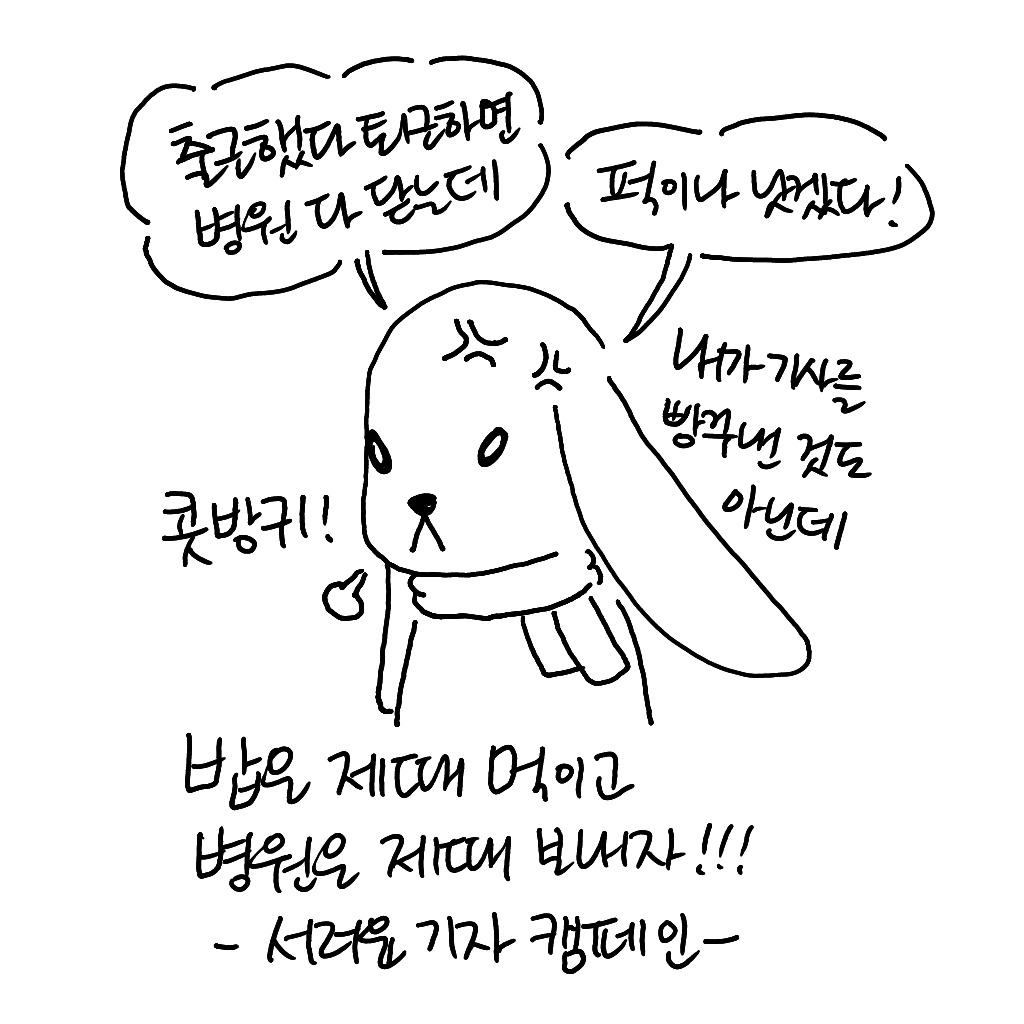 출근했다 퇴근하면
병원 다 닫는데
퍽이나 낫겠다!
내가 기사를
빵꾸낸 것도
아닌데
콧방귀!
밥은 제때 먹이고
병원은 제때 보내자!!!
- 서러운 기자 캠페인 -